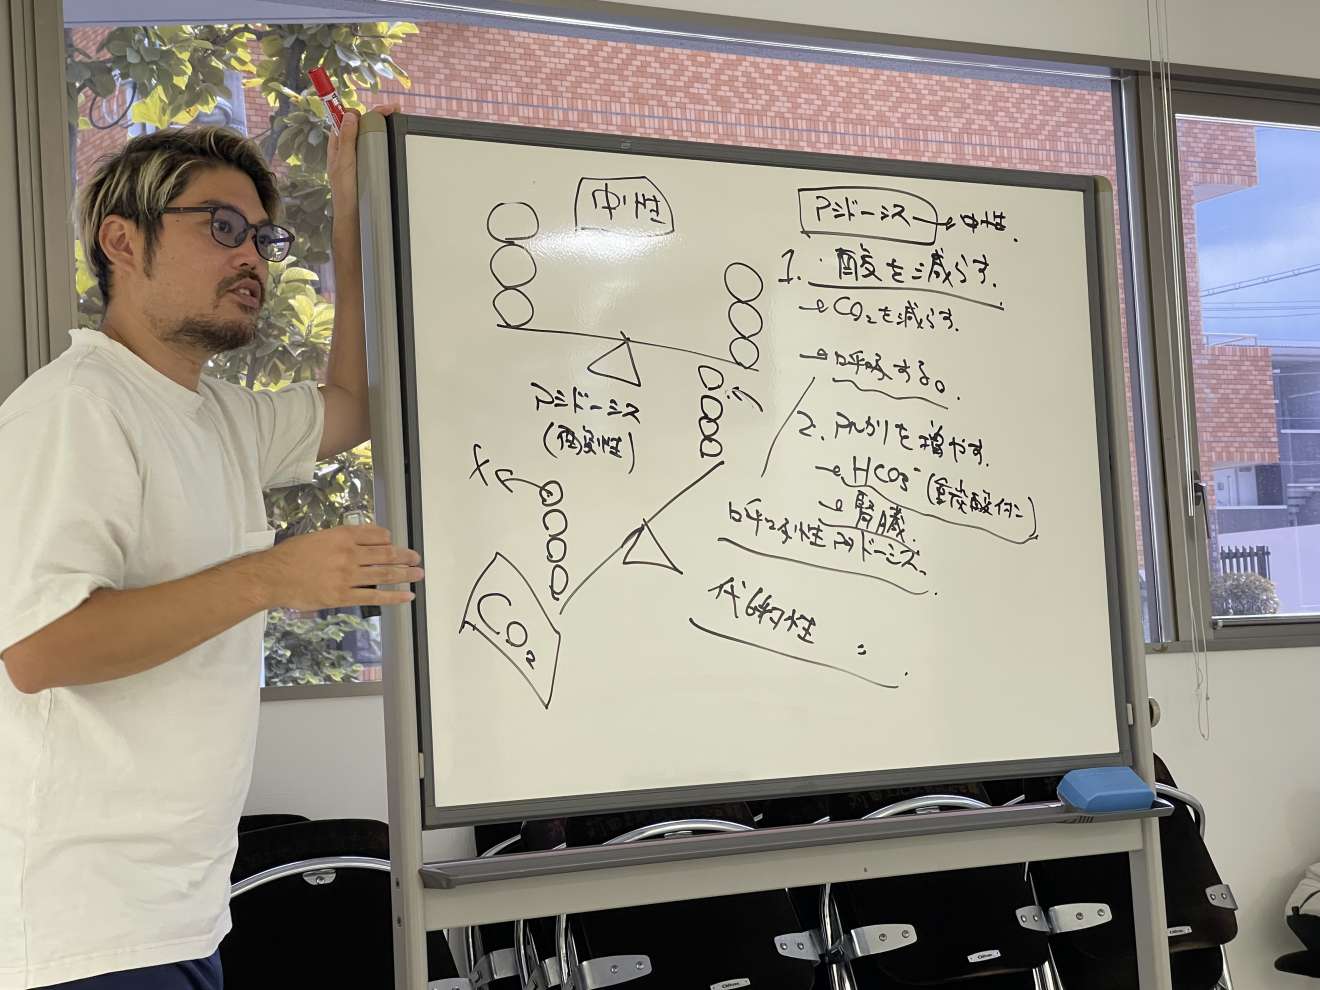 中性
アシドーシス
(酸性)
CO₂
アシドーシス→中性.
1. 酸を減らす.
→CO₂を減らす.
→呼吸する。
2. アルカリを増やす.
→HCO₃⁻(重炭酸イオン)
→腎臓.
呼吸性アシドーシス.
代謝性